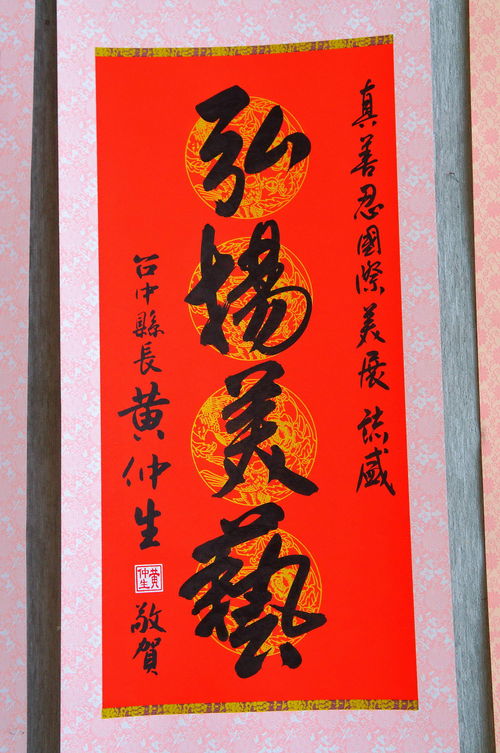 真善忍國際美展誌盛
弘揚美藝
台中縣長黃仲生
黃仲生
敬賀